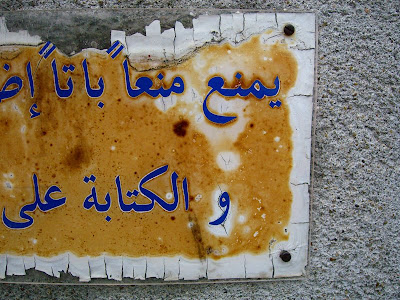 يمنع منعاً باتاً
و الكتابة على